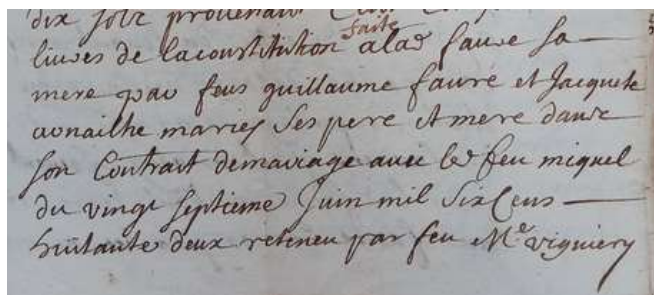 dix solz provenant
livres de la constitution faite a lad faure sa
mere par feus guillaume faure et Jacquete
aonailhe maries ses pere et mere dans
son Contract de mariage avec led feu miquel
du vingt septieme Juin mil six Cens
huitante deux reteneu par feu Me viguiery